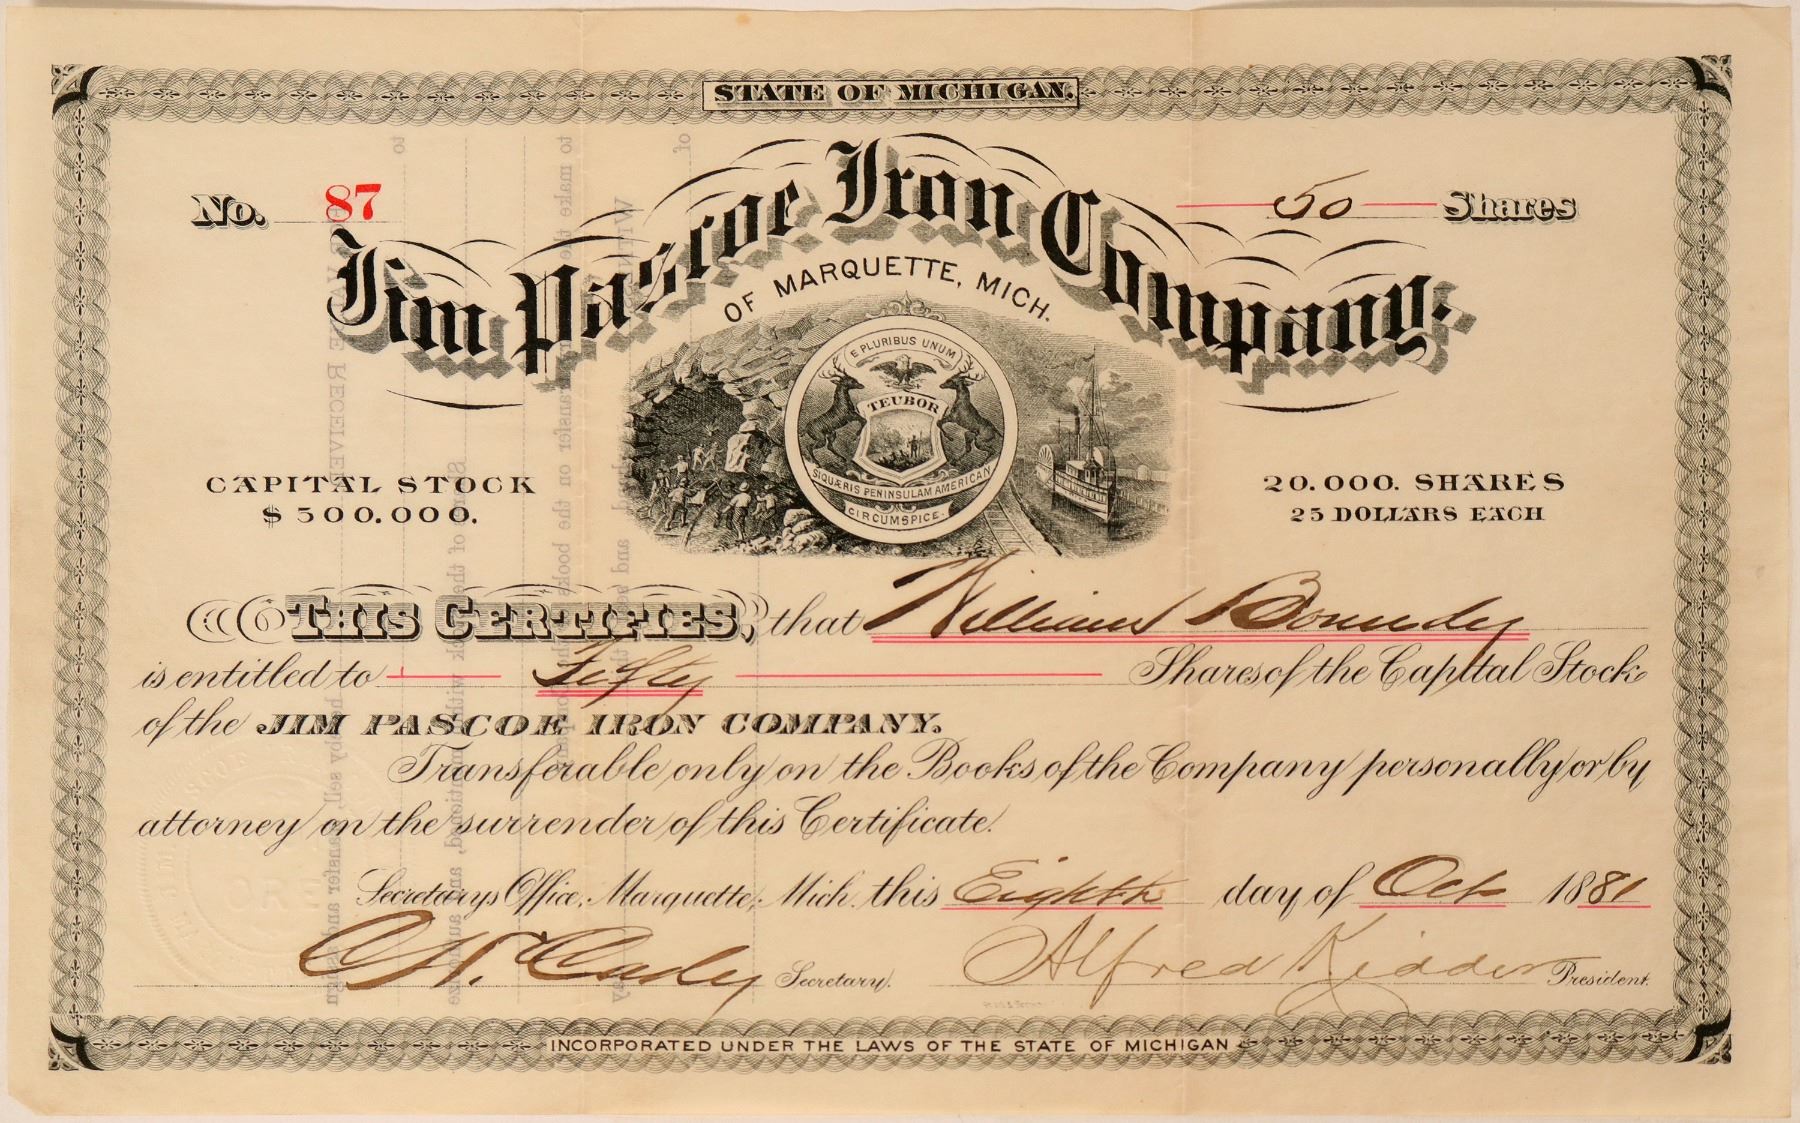 STATE OF MICHIGAN.
No. 87
50 Shares
Jim Pascoe Iron Company.
OF MARQUETTE, MICH.
E PLURIBUS UNUM
TEUBOR
SIQUÆRIS PENINSULAM AMERICAN
CIRCUMSPICE.
CAPITAL STOCK
$500.000.
20.000. SHARES
25 DOLLARS EACH
THIS CERTIFIES, that William Boundy
is entitled to Fifty Shares of the Capital Stock
of the JIM PASCOE IRON COMPANY.
Transferable only on the Books of the Company personally or by
attorney on the surrender of this Certificate.
Secretarys Office, Marquette, Mich. this Eighth day of Oct 1881
Secretary.
Alfred Kidder President.
INCORPORATED UNDER THE LAWS OF THE STATE OF MICHIGAN